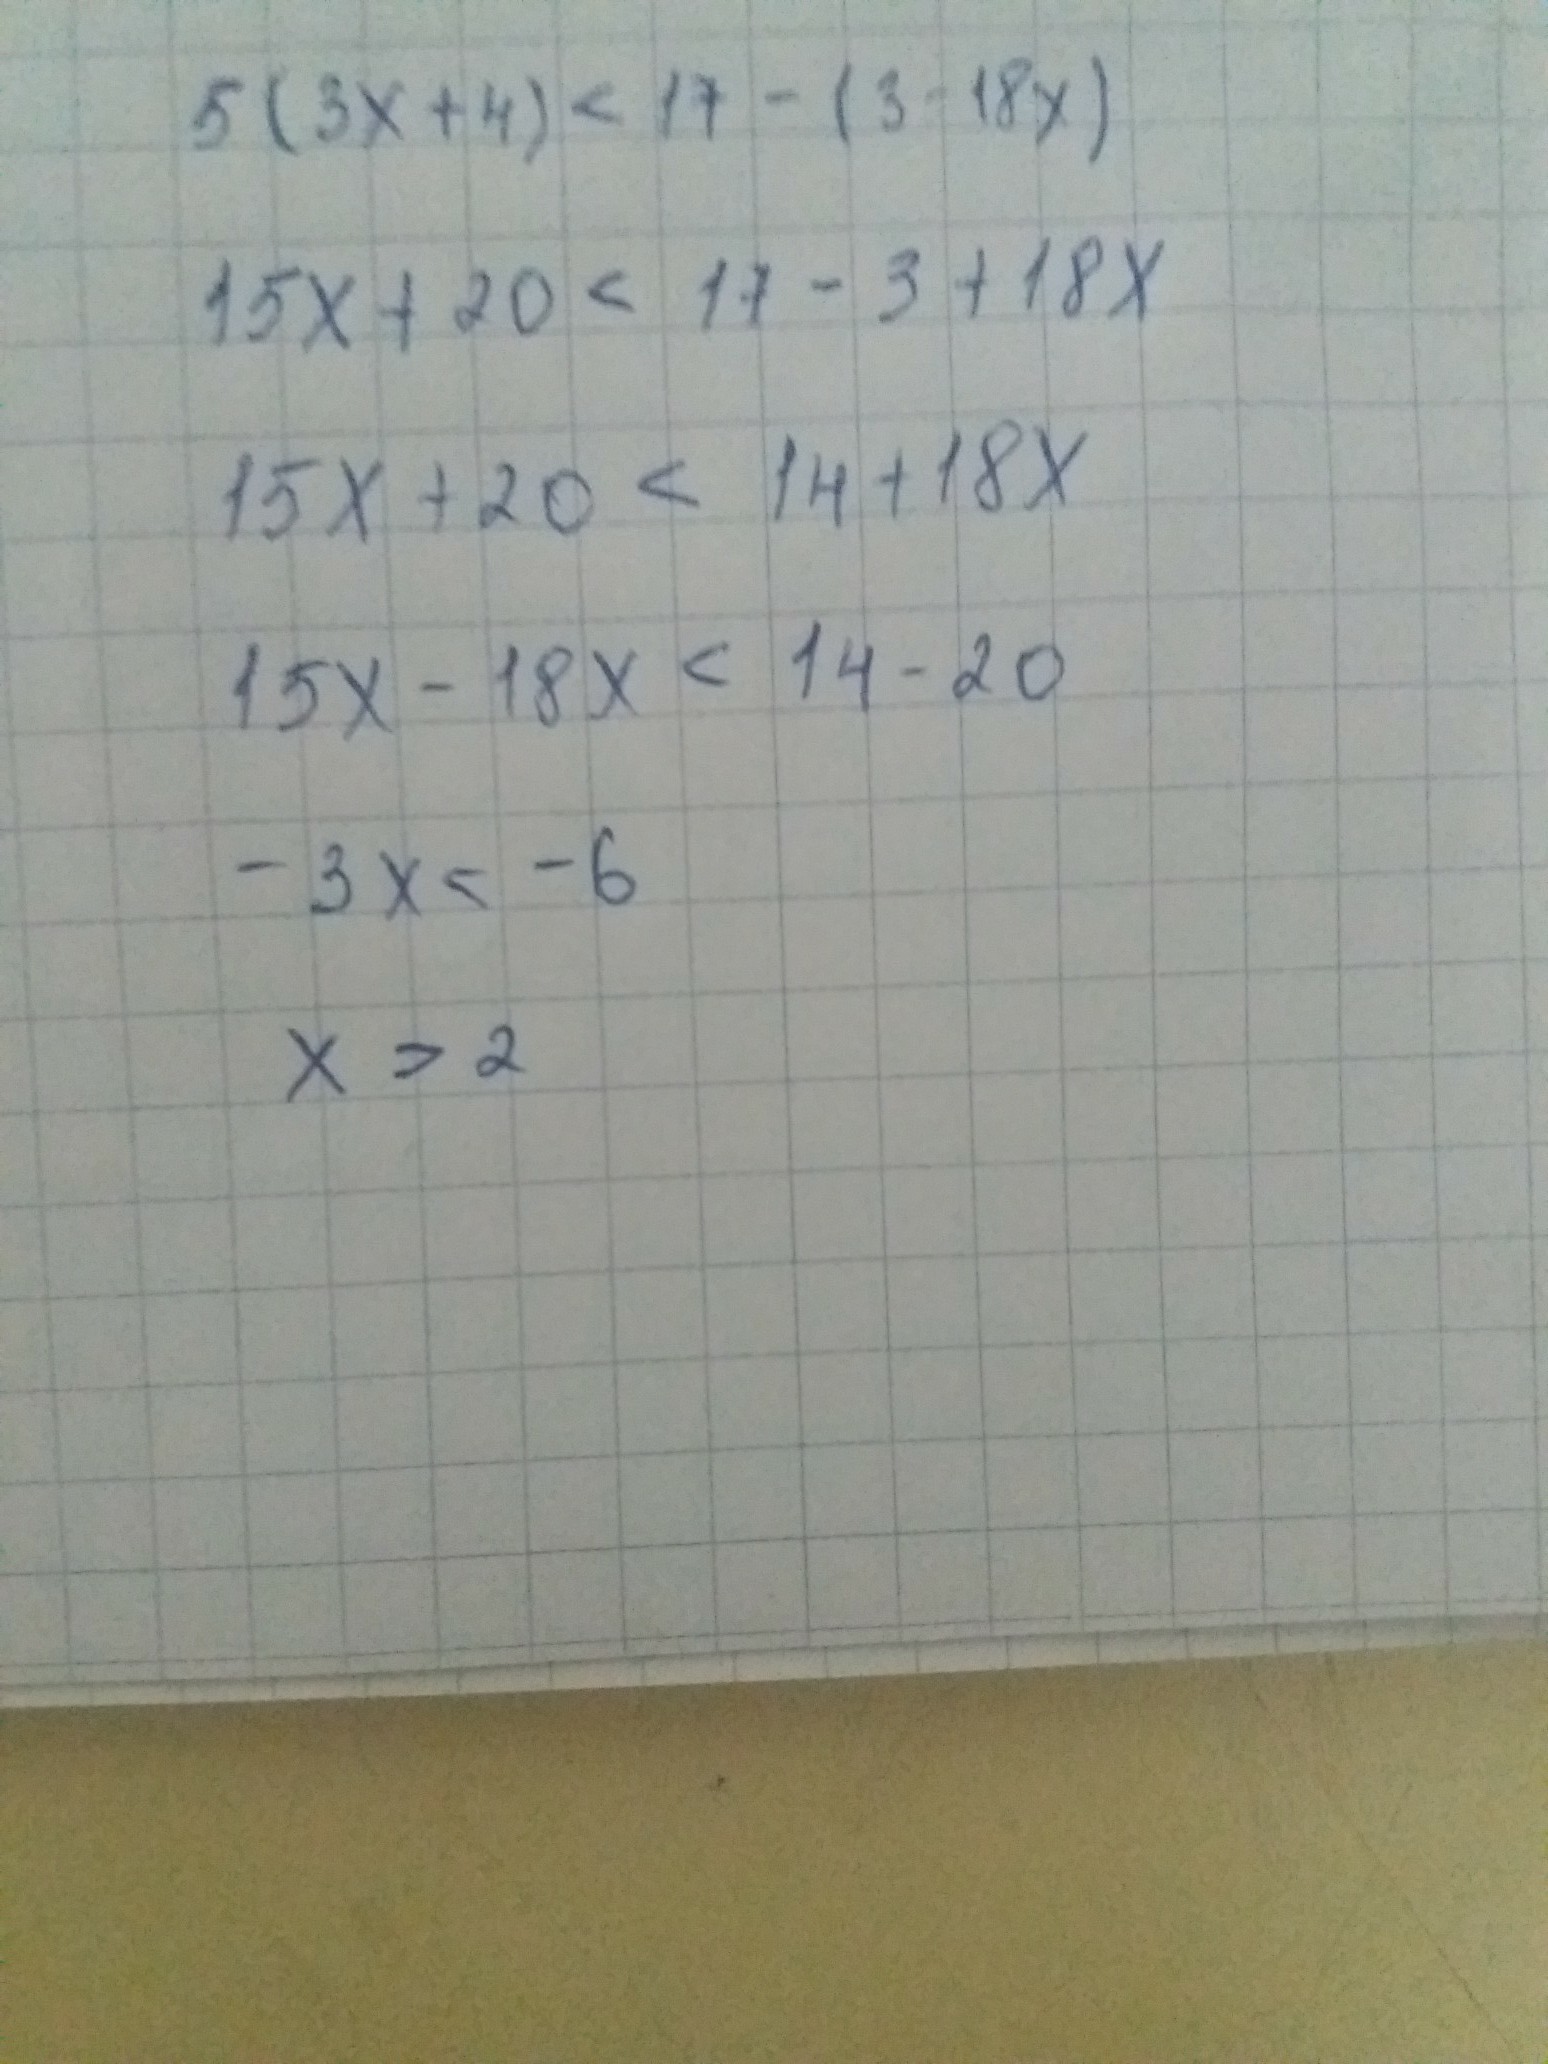 5(3x+4)<17-(3-18x)
15x+20<17-3+18x
15x+20<14+18x
15x-18x<14-20
-3x<-6
x>2